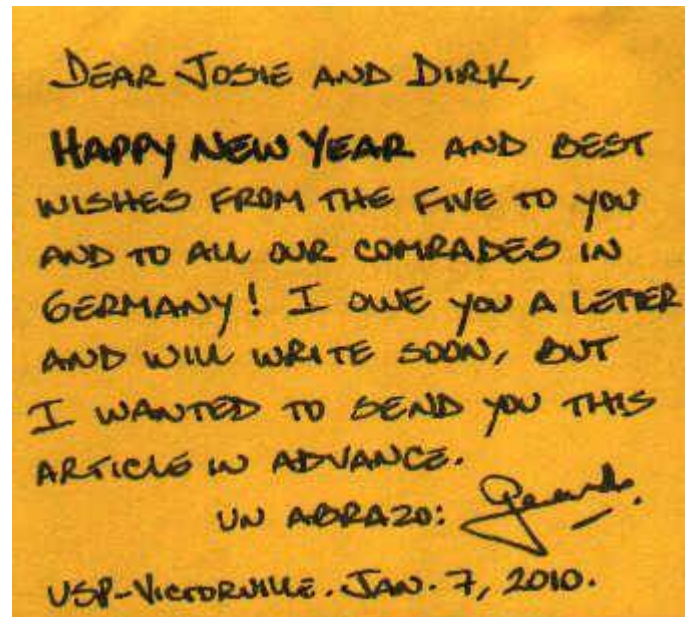 DEAR JOSIE AND DIRK,
HAPPY NEW YEAR AND BEST
WISHES FROM THE FIVE TO YOU
AND TO ALL OUR COMRADES IN
GERMANY! I OWE YOU A LETTER
AND WILL WRITE SOON, BUT
I WANTED TO SEND YOU THIS
ARTICLE IN ADVANCE.
UN ABRAZO: Gerardo.
USP-VICTORVILLE. JAN. 7, 2010.